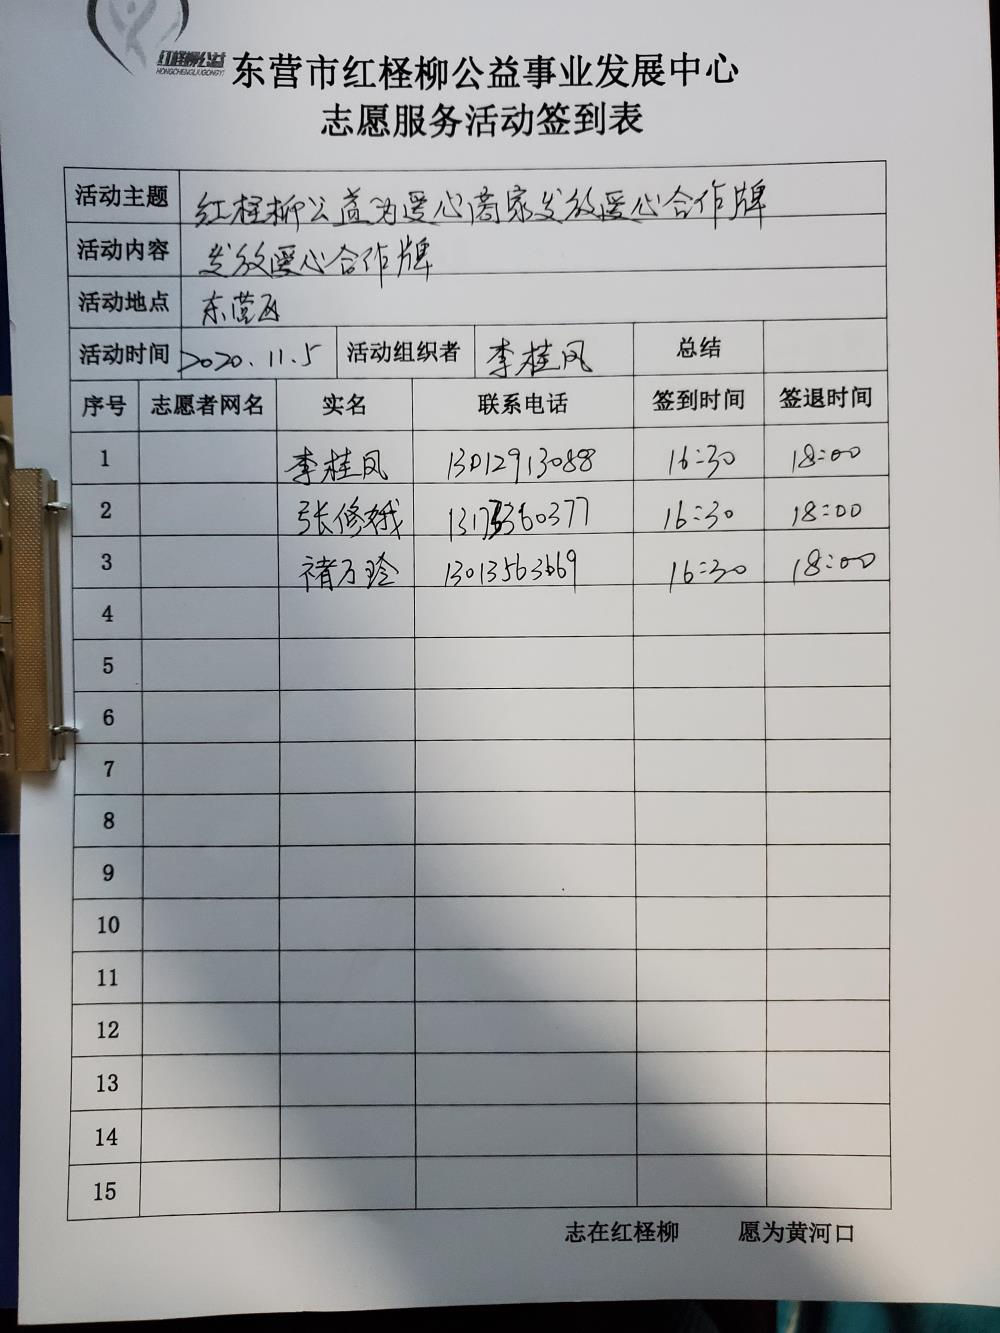 红柽柳公益
HONGCHENGLIUGONGYI
东营市红柽柳公益事业发展中心
志愿服务活动签到表
活动主题 红柽柳公益为爱心商家发放爱心合作牌
活动内容 发放爱心合作牌
活动地点 东营区
活动时间 2020.11.5 活动组织者 李桂凤 总结
序号 志愿者网名 实名 联系电话 签到时间 签退时间
1 李桂凤 13012913088 16:30 18:00
2 张修娥 16:30 18:00
3 褚万玲 13013563669 16:30 18:00
4
5
6
7
8
9
10
11
12
13
14
15
志在红柽柳 愿为黄河口